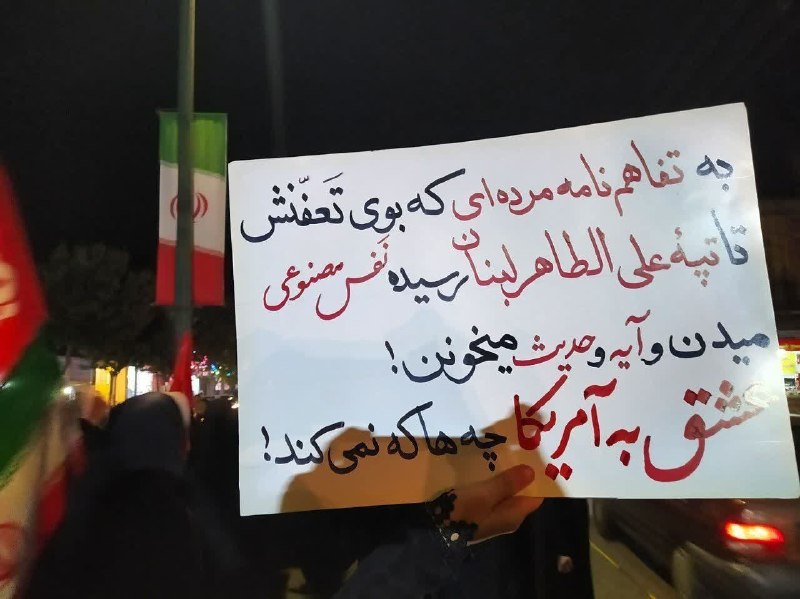 به تفاهم نامه مرده‌ای که بوی تَعفّنش
تا تپهٔ علی الطاهر لبنان رسیده نَفَس مصنوعی
میدن و آیه و حدیث میخونن!
عشق به آمریکا چه ها که نمی‌کند!